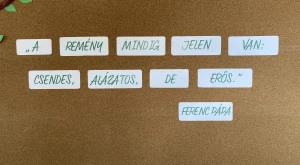 „A REMÉNY MINDIG JELEN VAN:
CSENDES, ALÁZATOS, DE ERŐS."
FERENC PÁPA